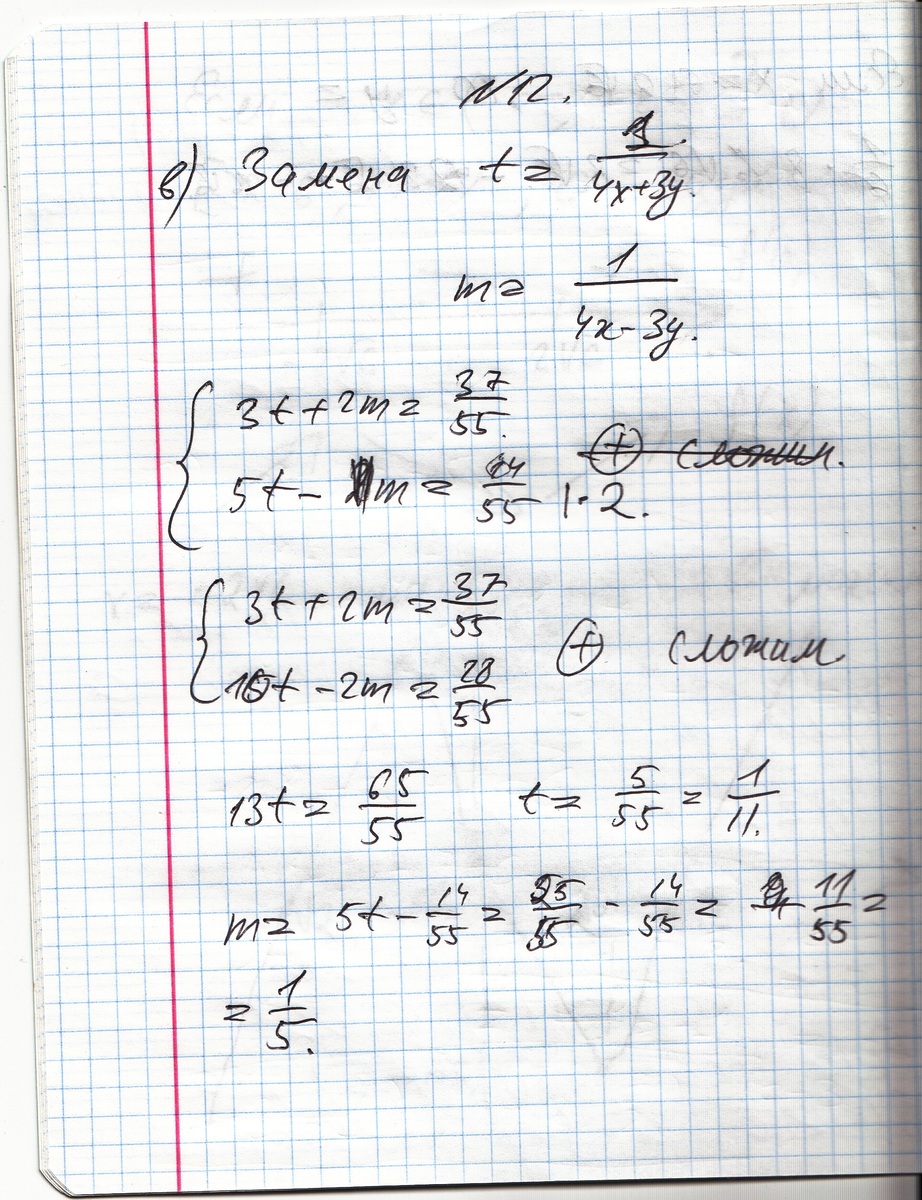 N12.
в) Замена t = 1/(4x+3y).
m = 1/(4x-3y).
{ 3t + 2m = 37/55.
5t - m = 14/55 |·2.
{ 3t + 2m = 37/55
10t - 2m = 28/55 ⊕ сложим
13t = 65/55 t = 5/55 = 1/11.
m = 5t - 14/55 = 25/55 - 14/55 = 11/55 =
= 1/5.